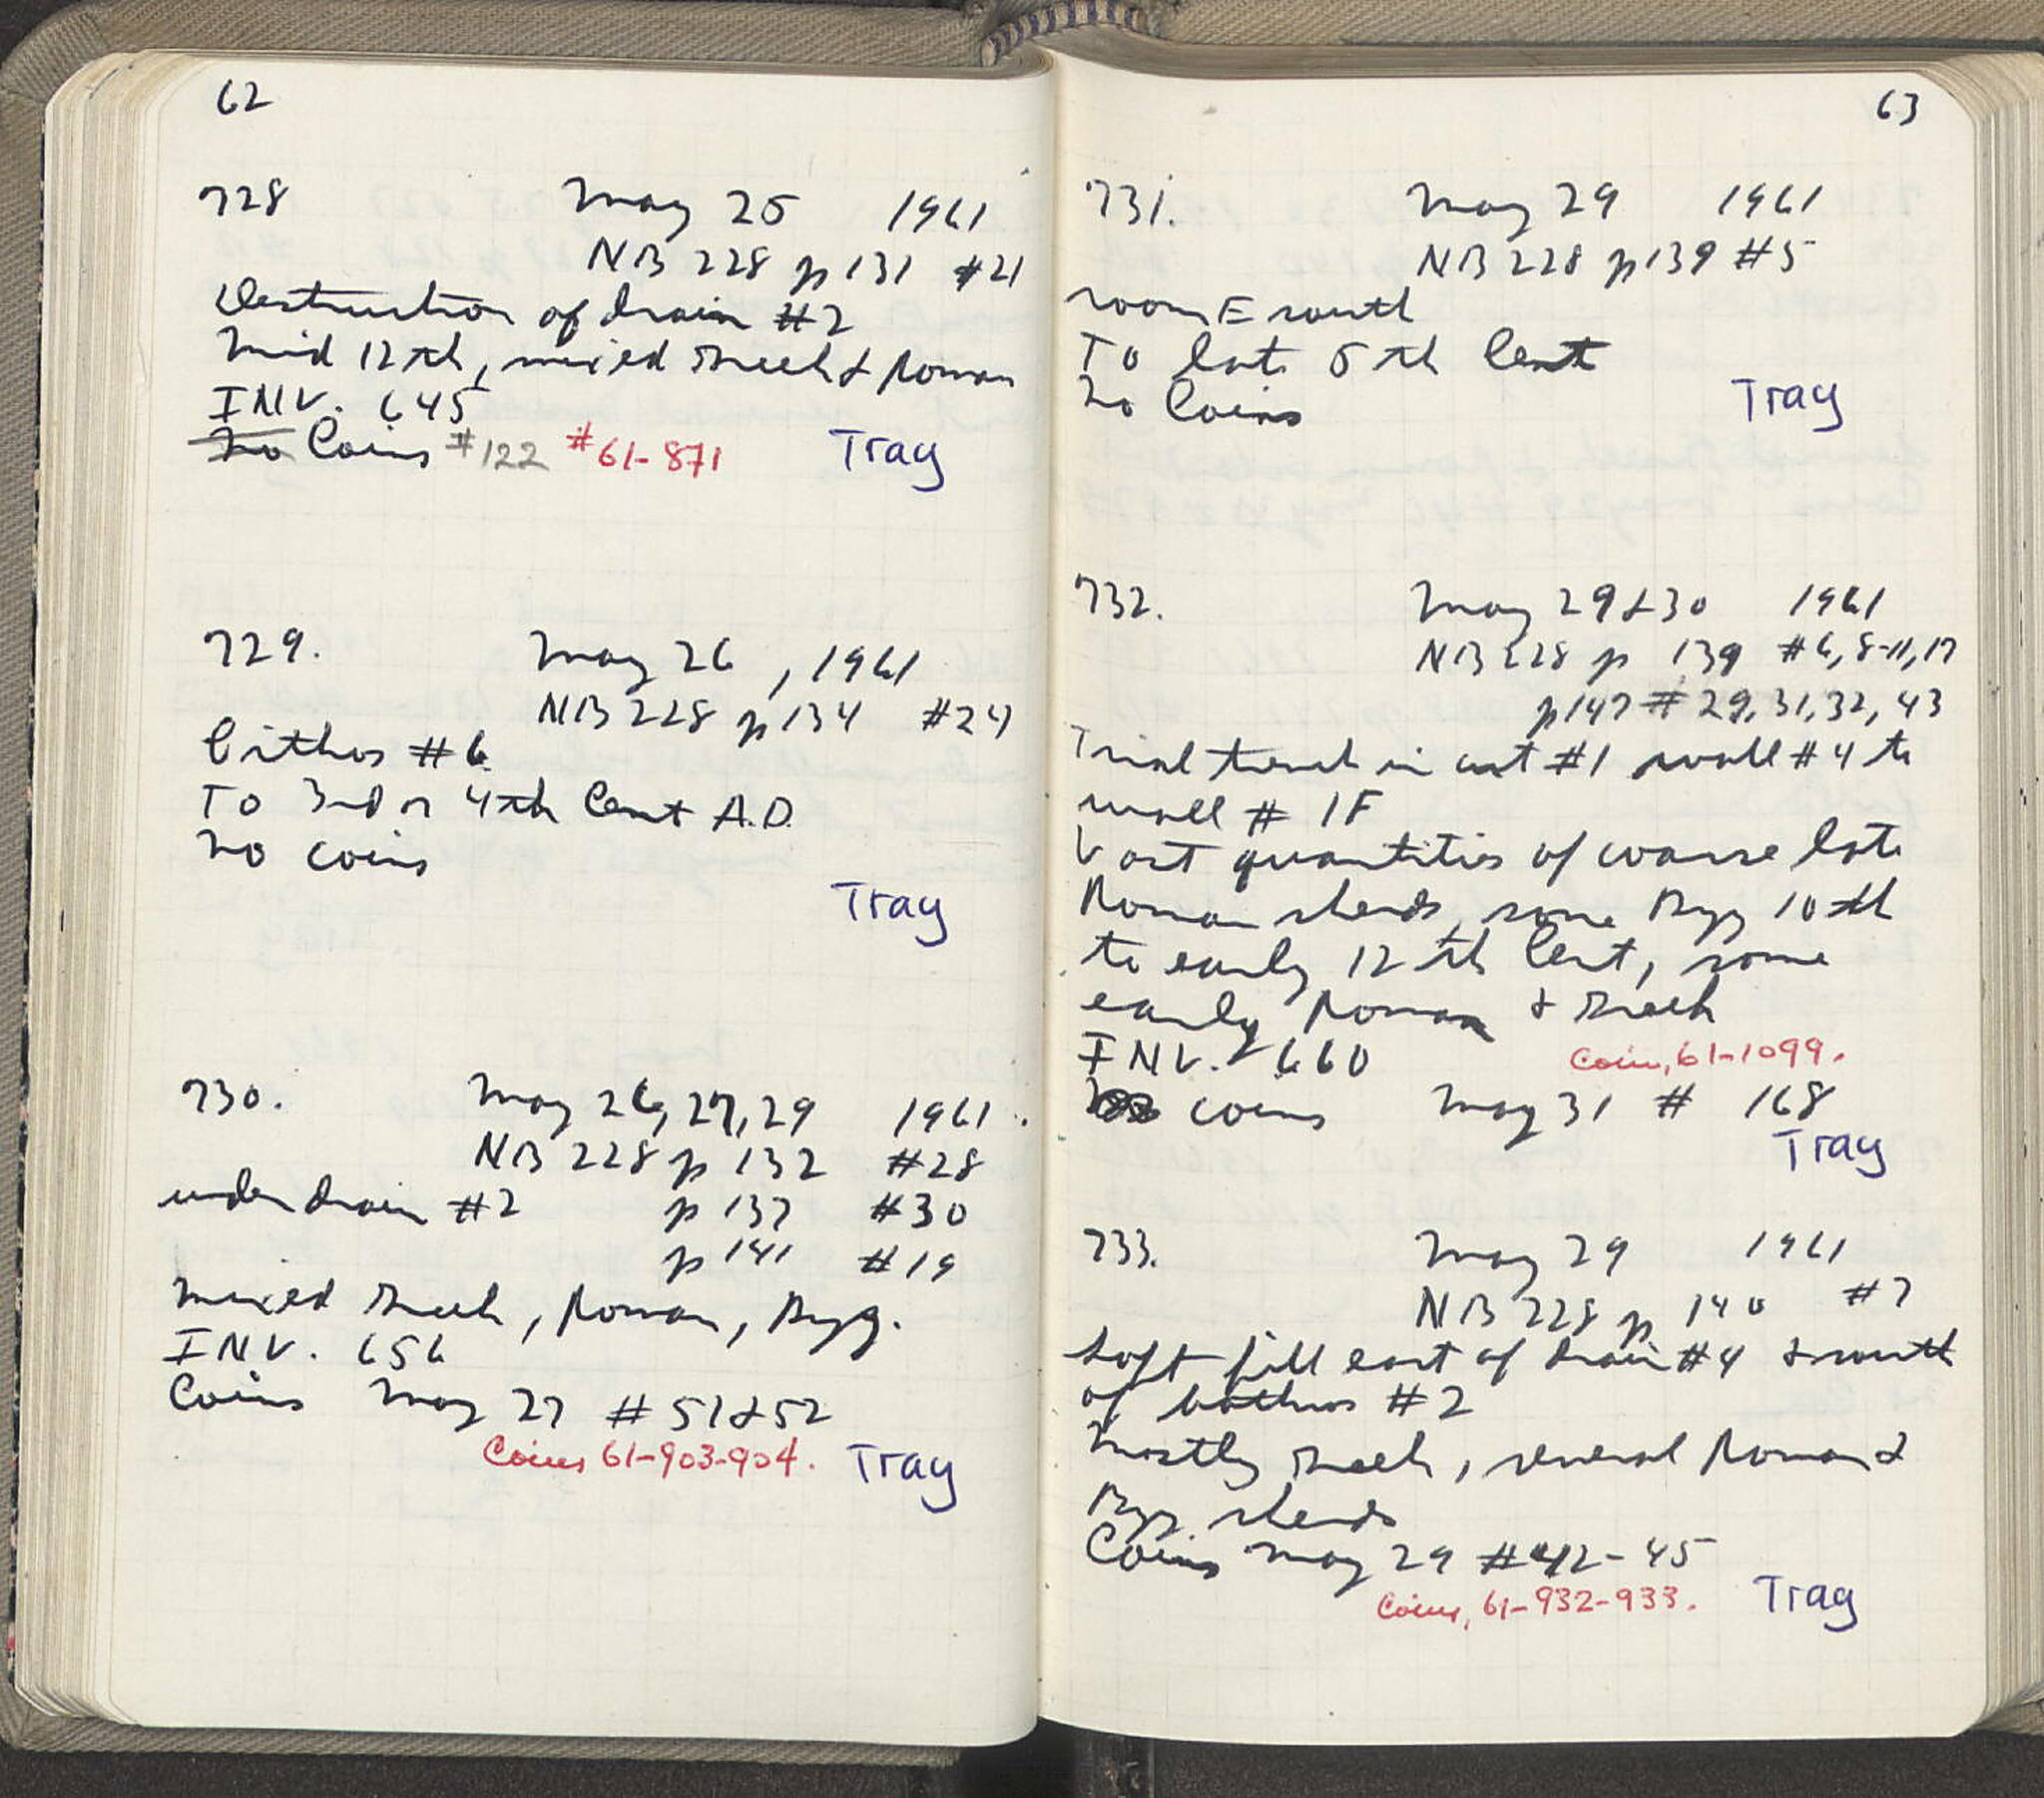 62
728 May 25 1961
NB 228 p 131 #21
Destruction of drain #2
Mid 12th, mixed Greek & Roman
INV. 645
No Coins #122 #61-871 Tray
729. May 26, 1961
NB 228 p 134 #24
Bothros #6
To 3rd or 4th Cent A.D.
No coins
Tray
730. May 26, 27, 29 1961.
NB 228 p 132 #28
under drain #2 p 137 #30
p 141 #19
Mixed Greek, Roman, Byz.
INV. 656
Coins May 27 #51 & 52
Coins 61-903-904. Tray
63
731. May 29 1961
NB 228 p 139 #5
room E south
To late 5th Cent
No Coins Tray
732. May 29 & 30 1961
NB 228 p 139 #6, 8-11, 17
p 147 # 29, 31, 32, 43
Trial trench in cut #1 wall #4 to
wall # 1F
Vast quantities of coarse late
Roman sherds, some Byz 10th
to early 12th Cent, some
early Roman & Greek
INV. 660 Coin, 61-1099.
coins May 31 # 168
Tray
733. May 29 1961
NB 228 p 140 #7
Soft fill east of drain #4 & south
of bothros #2
Mostly Greek, several Roman &
Byz. sherds
Coins May 29 #42-45
Coins, 61-932-933. Tray